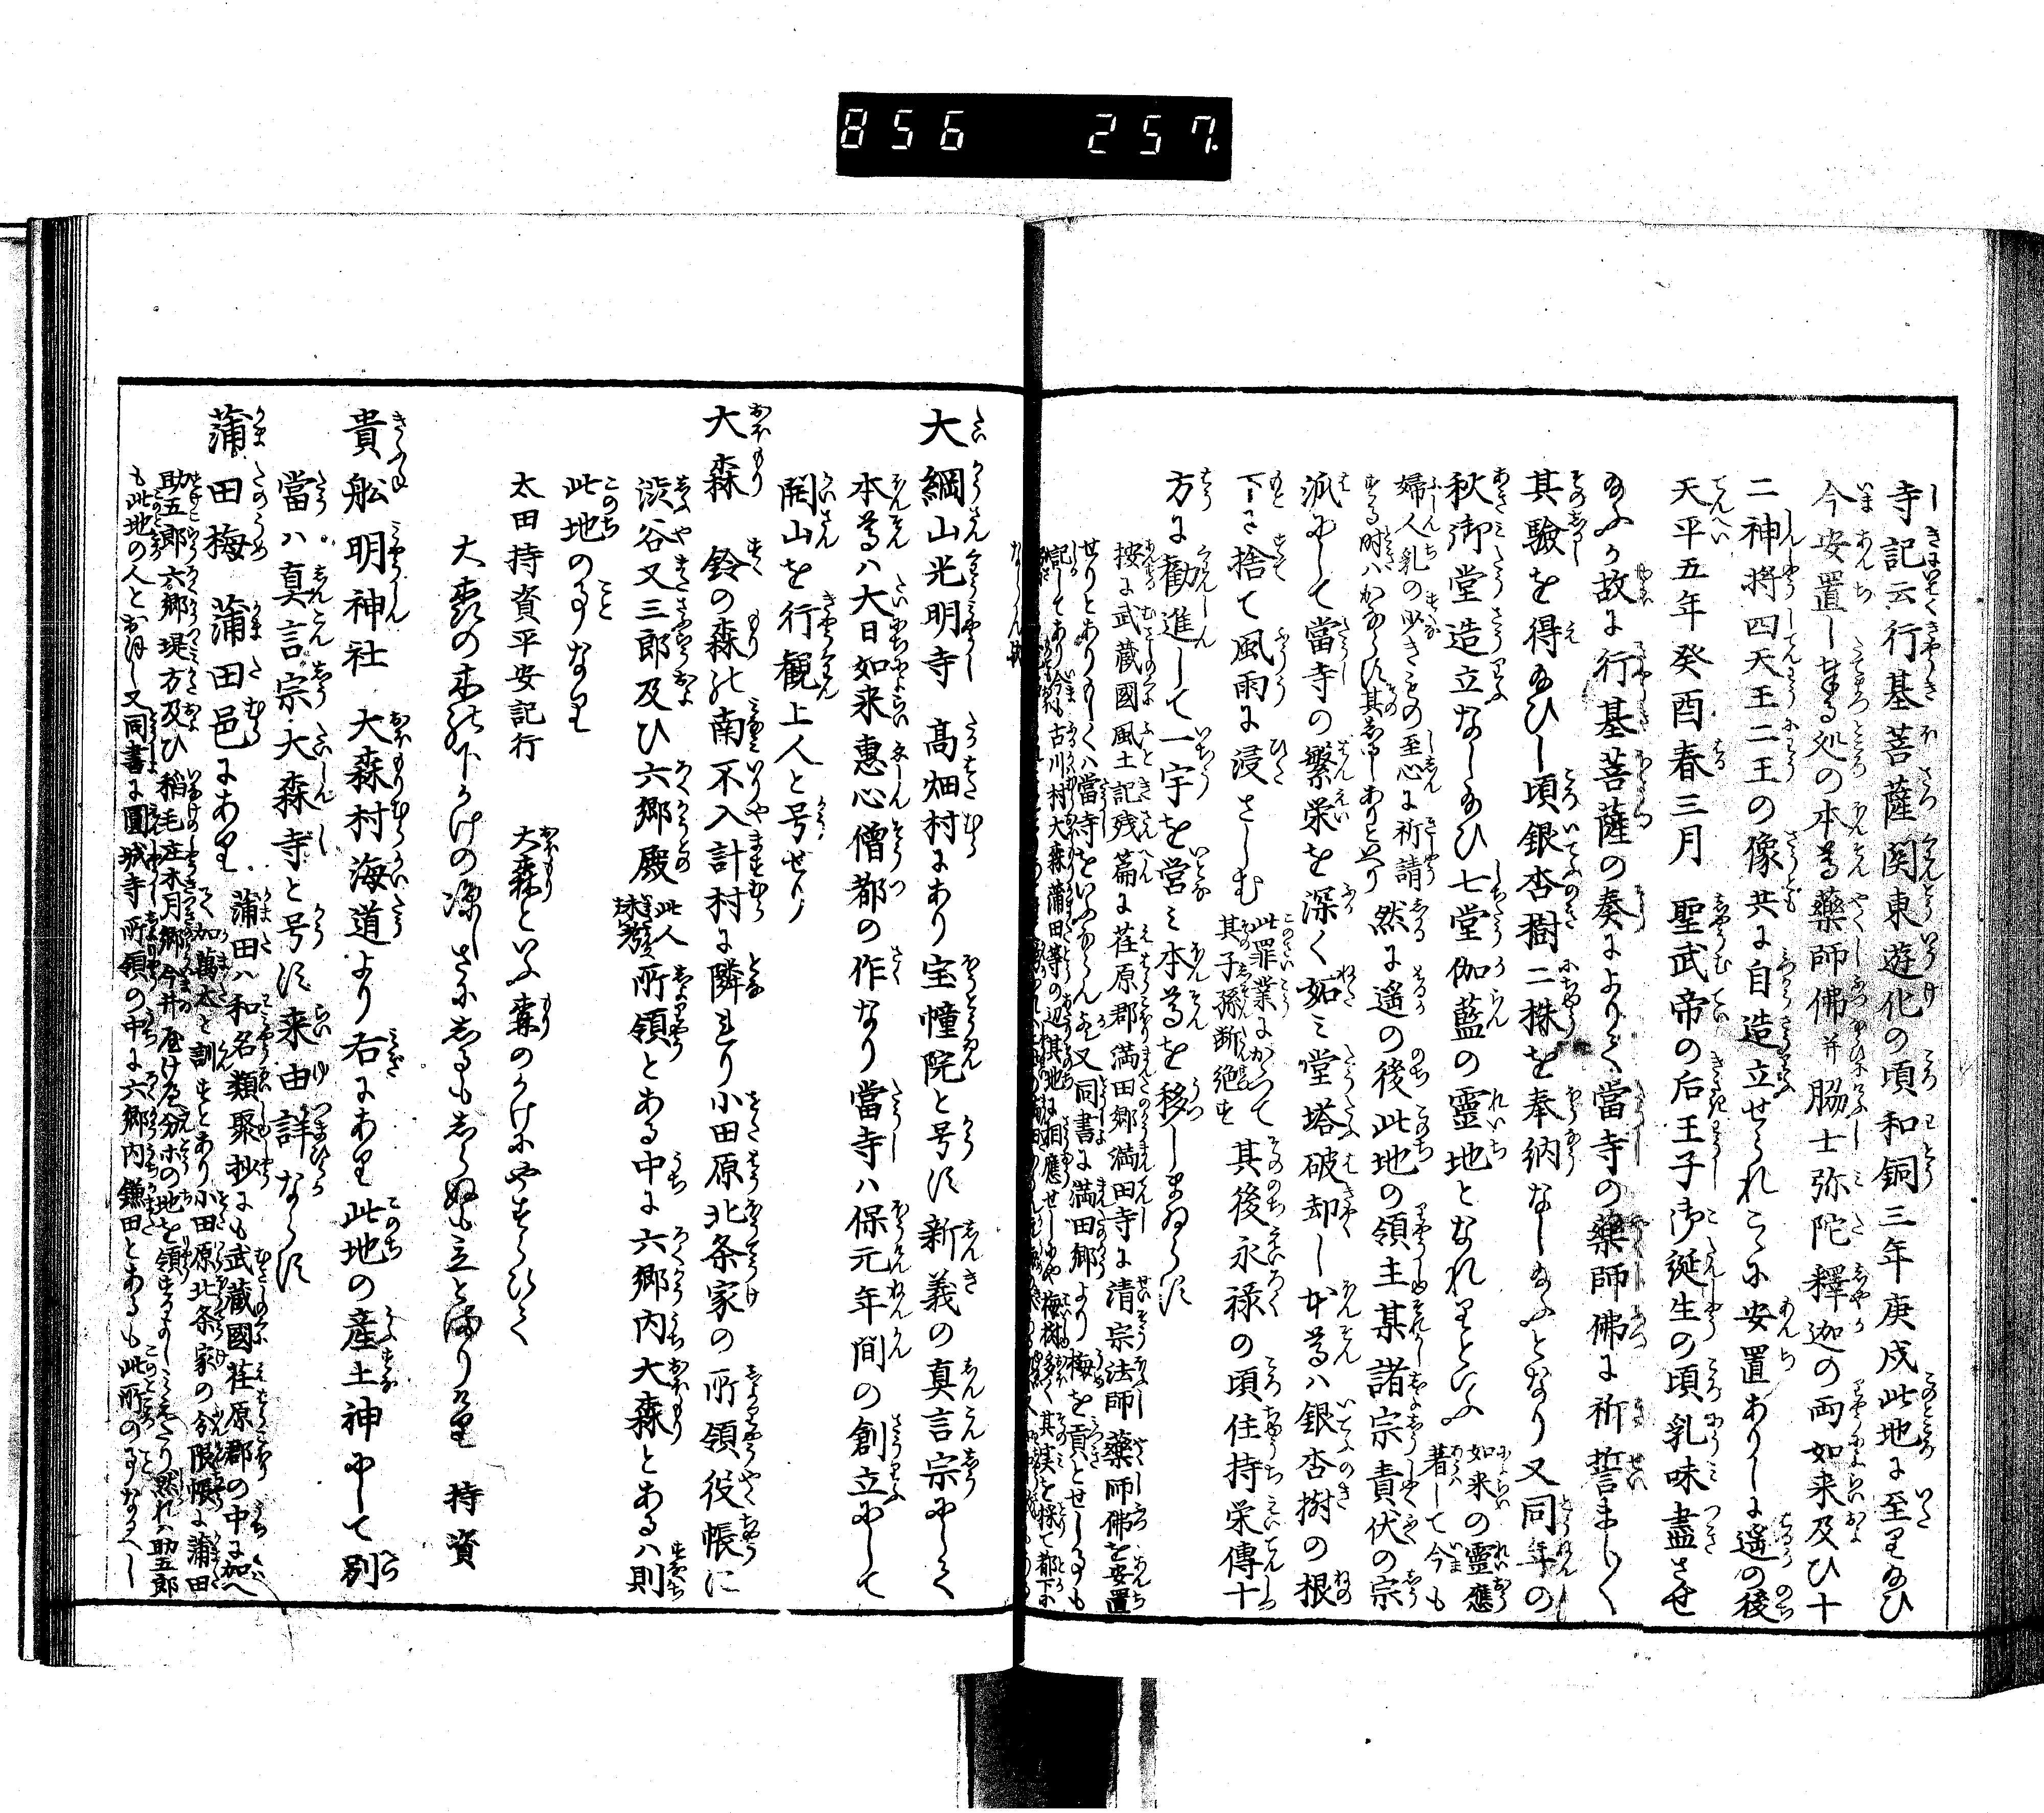 856 257
寺記云行基菩薩関東遊化の頃和銅三年庚戌此地に至り給ひ
今安置し奉る処の本尊藥師佛并脇士弥陀釋迦の両如来及ひ十
二神将四天王二王の像共に自造立せられこゝに安置ありしに遙の後
天平五年癸酉春三月聖武帝の后王子御誕生の頃乳味盡させ
給ふ故に行基菩薩の奏によりて當寺の藥師佛に祈誓まし〳〵
其驗を得給ひし頃銀杏樹二株を奉納なし給ふとなり又同年の
秋御堂造立なし給ひ七堂伽藍の靈地となれりといふ如来の靈應著して今も
婦人乳の少きもの至心に祈請する時ハかならす其しるしありと云り然に遙の後此地の領主某諸宗責伏の宗
派にして當寺の繁栄を深く妬ミ堂塔破却し本尊ハ銀杏樹の根
下に捨て風雨に浸さしむ此罪業によつて其子孫断絶す其後永禄の頃住持栄傳十
方に勸進して一宇を営ミ本尊を移しまゐらす
按に武蔵國風土記残篇に荏原郡満田郷満田寺に清宗法師藥師佛を安置
せりとありもしくハ當寺をいふならん又同書に満田郷より梅を貢とせしも
記してあり今も古川村大森蒲田等の辺其地に相應せしにや梅樹多く其実を採て都下に
大綱山光明寺 高畑村にあり宝幢院と号す新義の真言宗にして
本尊ハ大日如来惠心僧都の作なり當寺ハ保元年間の創立にして
開山を行観上人と号せり
大森 鈴の森の南不入計村に隣れり小田原北条家の所領役帳に
渋谷又三郎及ひ六郷殿此人未考所領とある中に六郷内大森とあるハ則
此地の事なり
太田持資平安記行 大森といふ森のかけにやすらひて
大森の木の下かけの凉しさにしるもしらぬも立とまりけり 持資
貴舩明神社 大森村海道より右にあり此地の産土神にして別
當ハ真言宗大森寺と号す来由詳ならす
蒲田梅 蒲田邑にあり蒲田ハ和名類聚抄にも武蔵國荏原郡の中に加へ
て加萬太と訓すとあり小田原北条家の分限帳に蒲田
助五郎六郷堤方及ひ稲毛庄木月郷今井分の地を領するよしみえたり然れハ助五郎
も此地の人とおほし又同書に圓城寺所領の中に六郷内鎌田とあるも此所の事なるへし